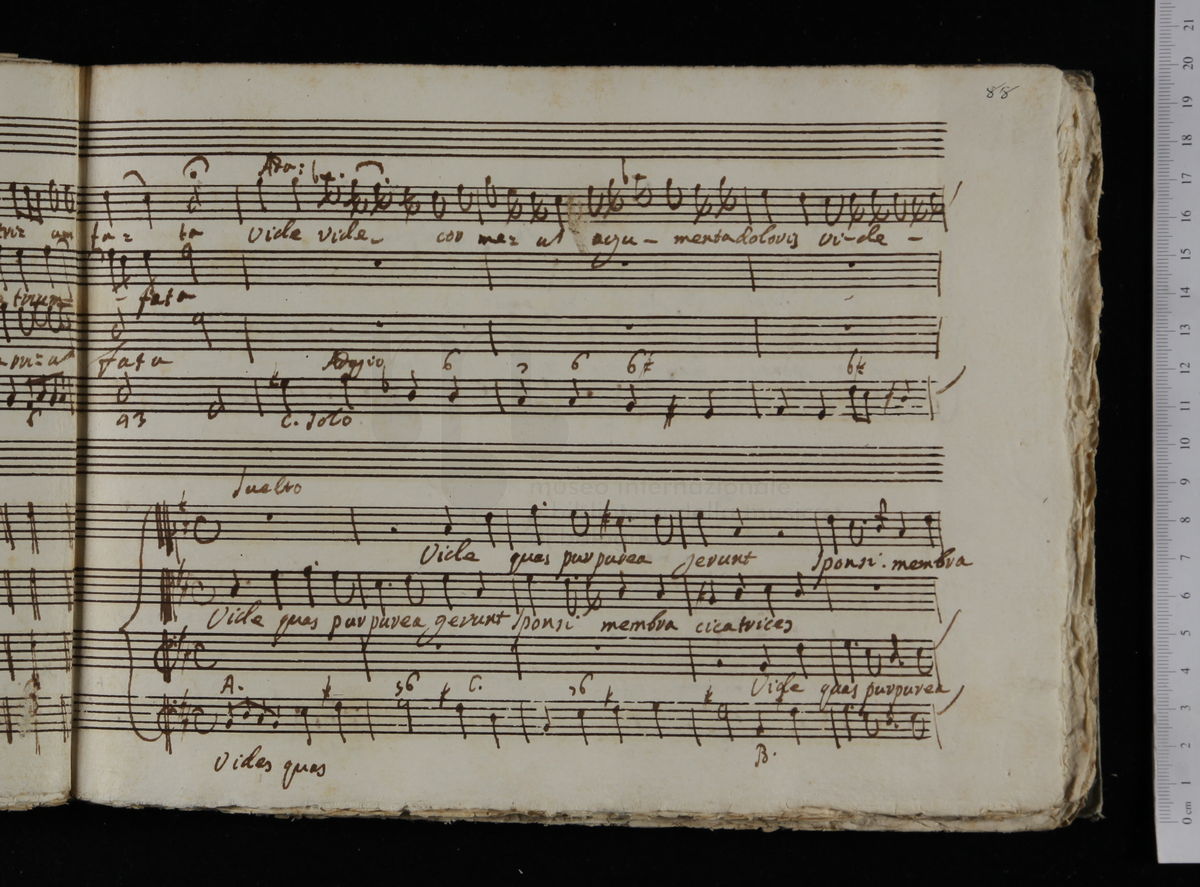 88
Ado:
ta= ta vide vide_ cor me= u argu- menta doloris vi-de -
fata
Adagio 6 6 6
fata
93 C. solo
museo internazionale
Suelto
Vide quas purpurea gerunt sponsi membra
Vide quas purpurea gerunt sponsi membra cicatrices
Vide quas purpurea
A. 56 C. 56
B.
Vides quas
21
20
19
18
17
16
15
14
13
12
11
10
9
8
7
6
5
4
3
2
1
0 cm